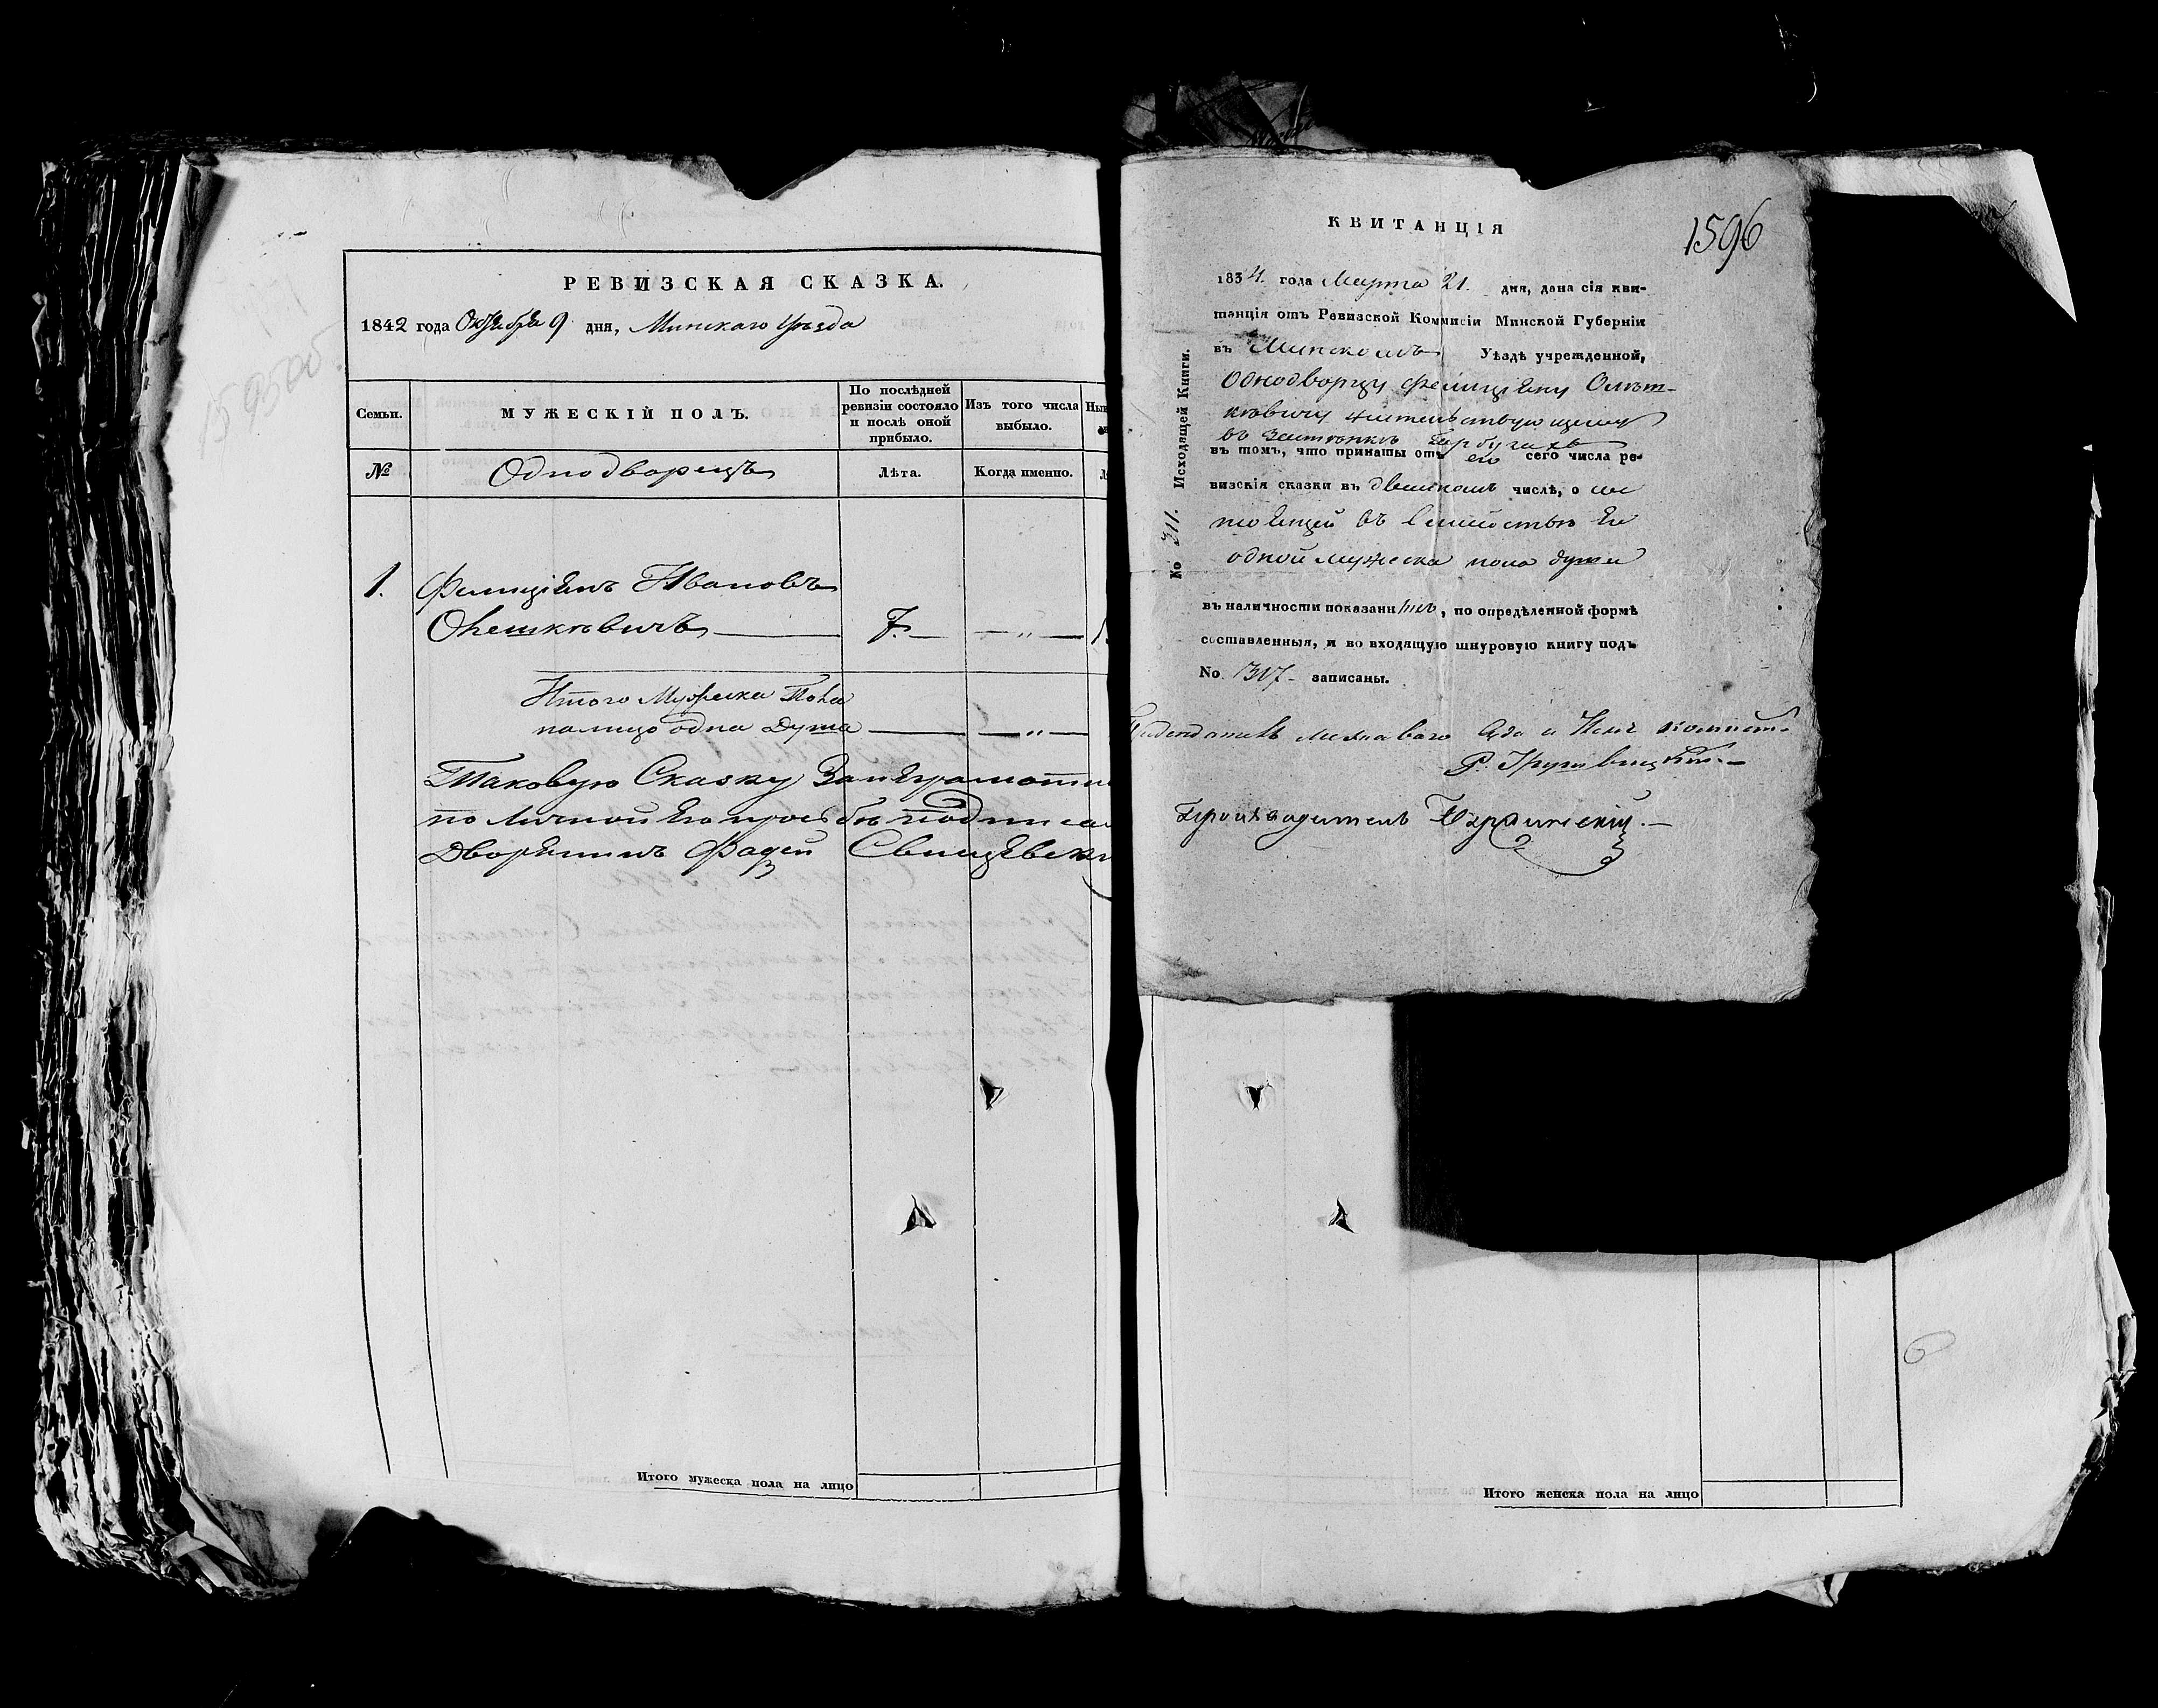 РЕВИЗСКАЯ СКАЗКА.
1842 года Октября 9 дня, Минскаго Уѣзда
Семьи.
МУЖЕСКІЙ ПОЛЪ.
По послѣдней ревизіи состояло и послѣ оной прибыло.
Изъ того числа выбыло.
№
Однодворецъ
Лѣта.
Когда именно.
1. Фелиціянъ Ивановъ
Олешкѣвичъ 7. — „ —
Итого Мужеска Пола
налицо одна Душа — „ —
Таковую Сказку За неграмотн
по личной его просьбѣ подписа
Дворянинъ Фадей Свенцѣвск
Итого мужеска пола на лицо
1596
КВИТАНЦІЯ
1834. года Марта 21. дня, дана сія кви-
танція отъ Ревизской Коммисіи Минской Губерніи
въ Минскомъ Уѣздѣ учрежденной,
Однодворцу Фелиціяну Олѣш-
кѣвичу жительствующему
въ Застѣнкѣ
въ томъ, что приняты отъ его сего числа ре-
визскія сказки въ двойномъ числѣ, о сос
тоящей въ Семействѣ Ея
одной мужеска пола души
въ наличности показанныхъ, по опредѣленной формѣ
составленныя, и во входящую шнуровую книгу подъ
No 1317 - записаны.
No 311. Исходящей Книги.
Производитель
Итого женска пола на лицо